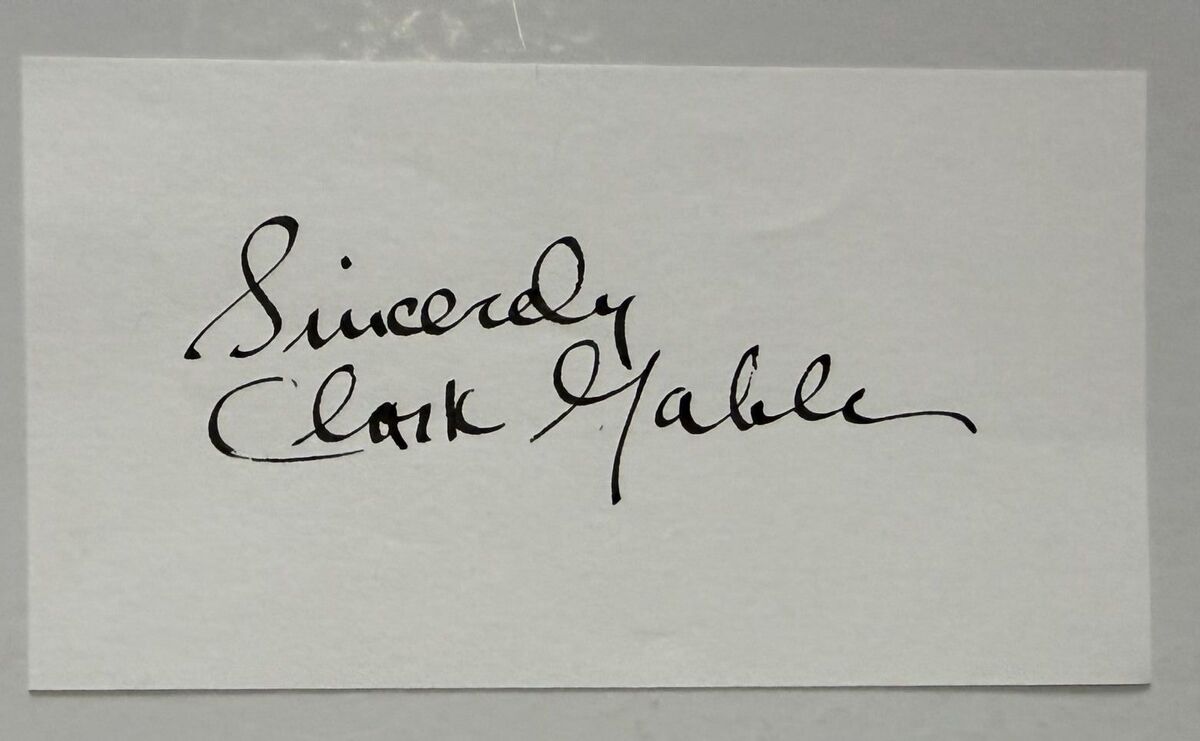 Sincerely
Clark Gable